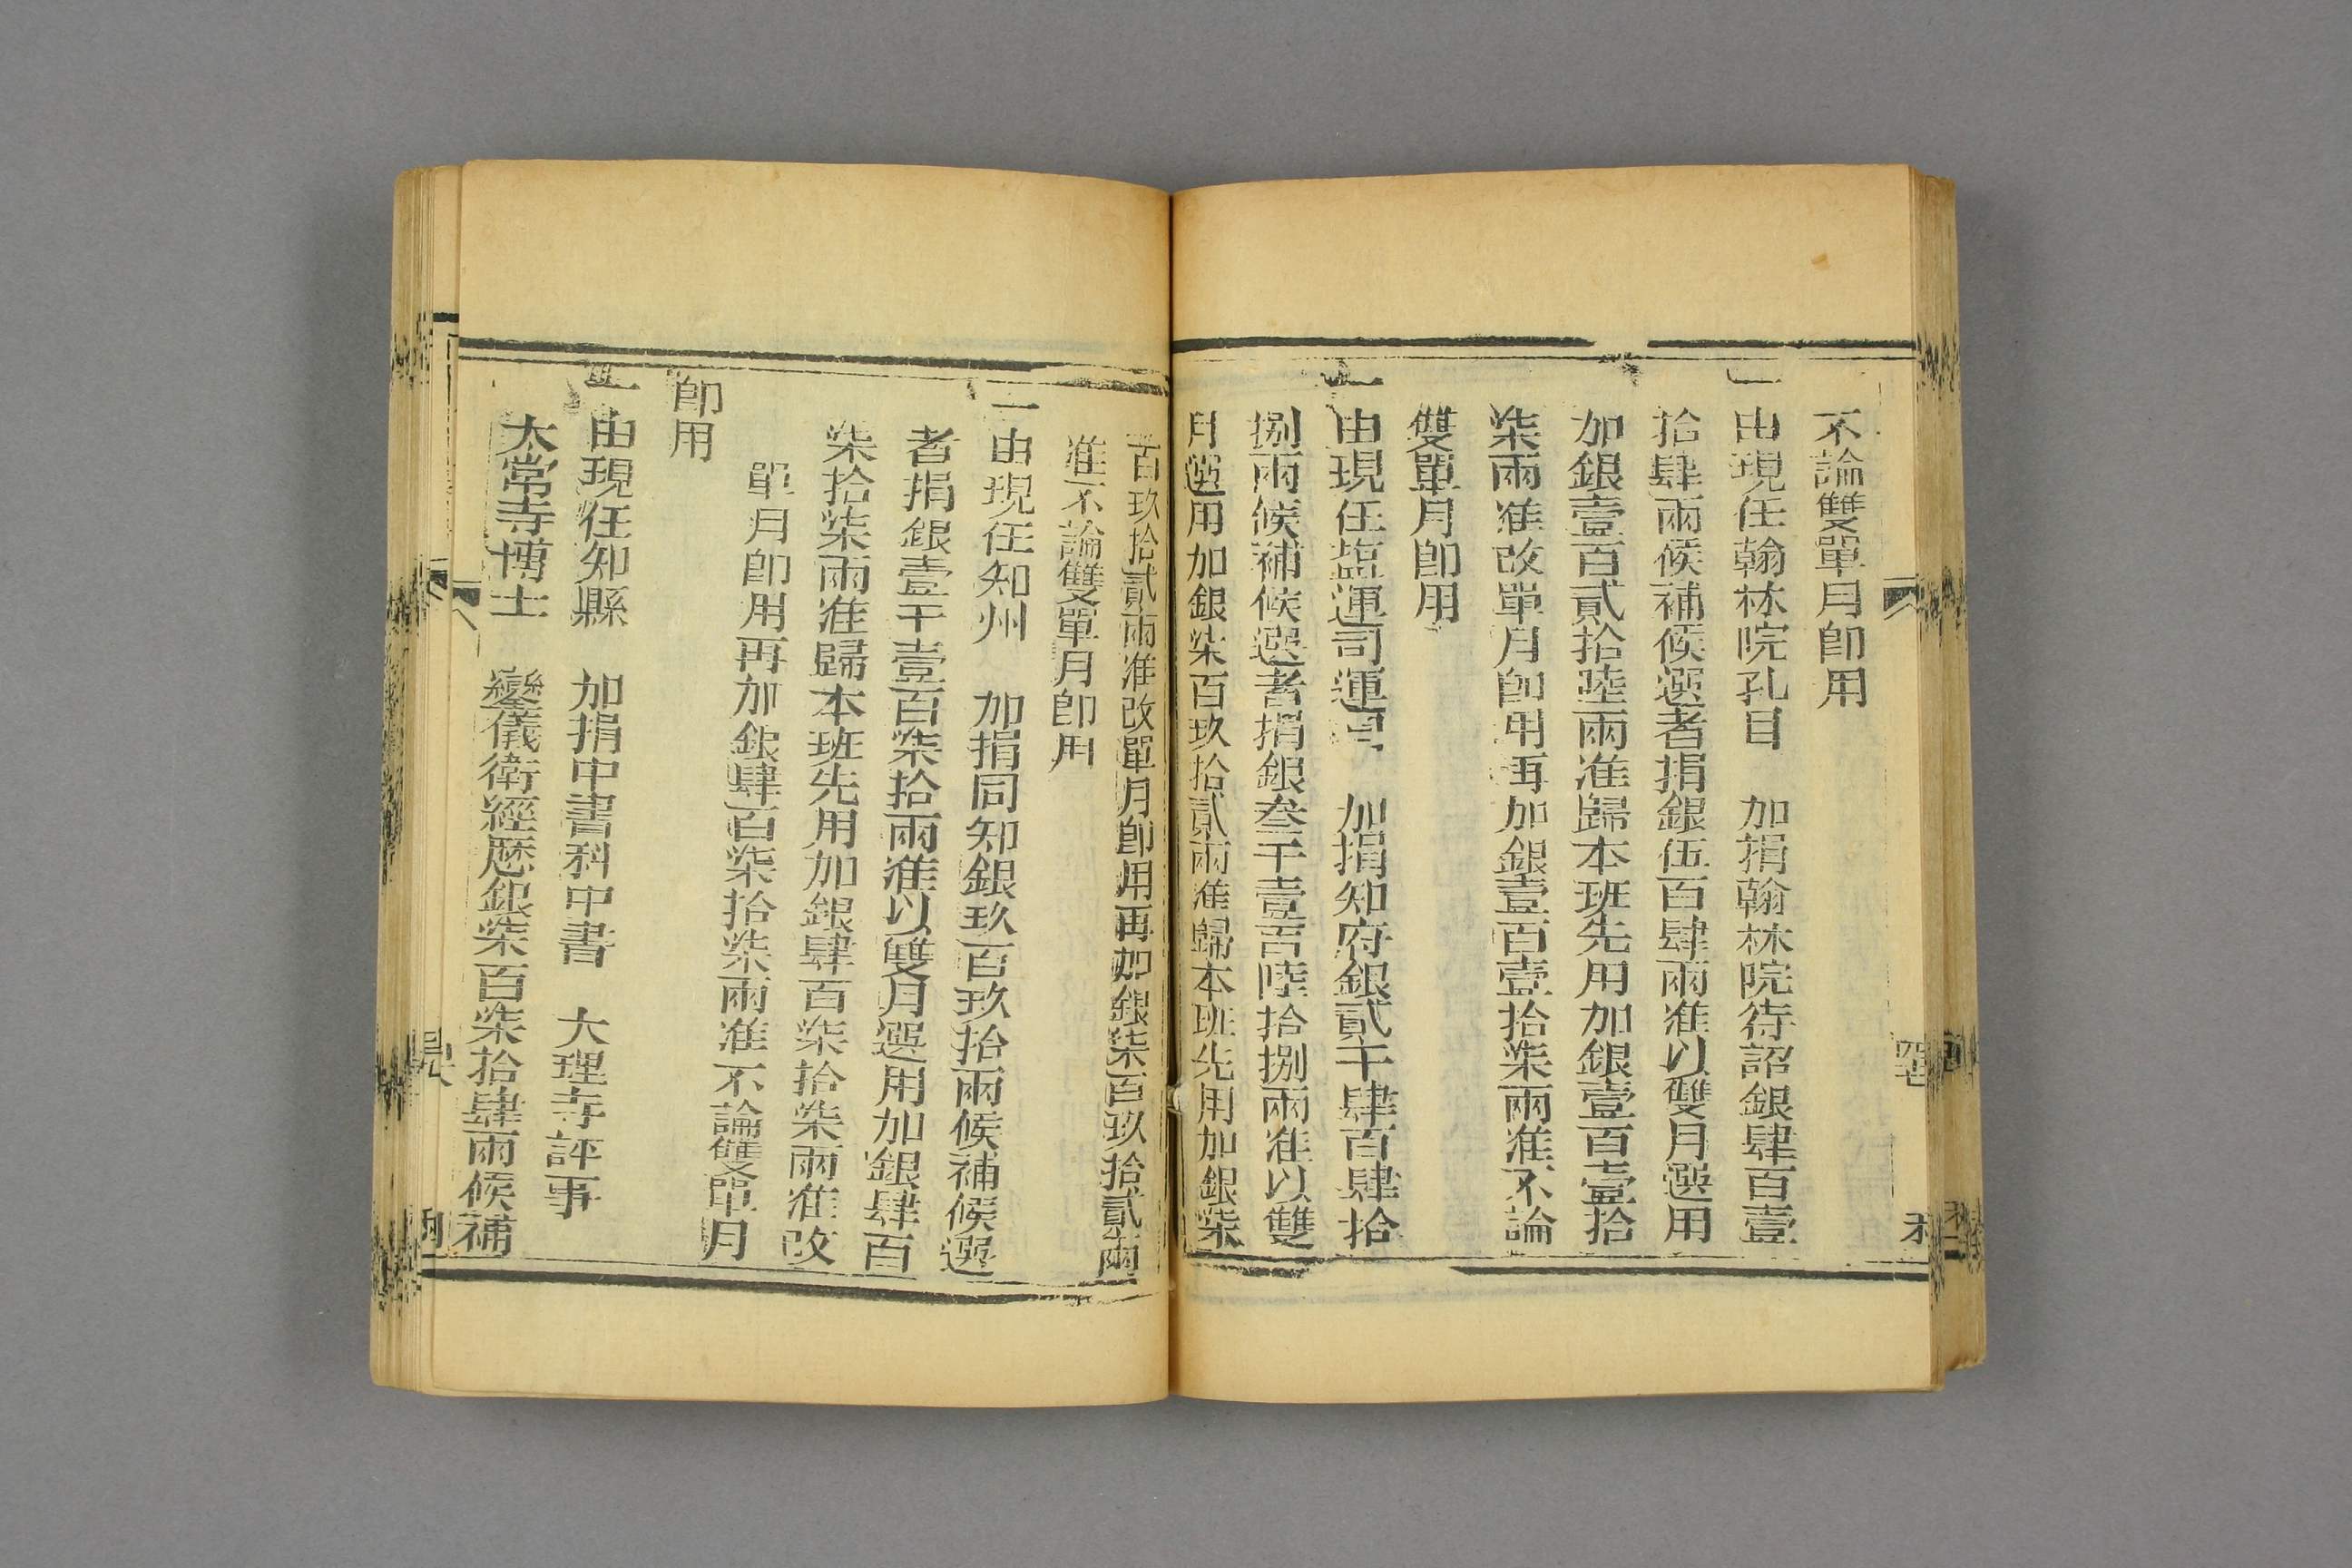 不論雙單月卽用
一由現任翰林院孔目　加捐翰林院待詔銀肆百壹
拾肆兩候補候選者捐銀伍百肆兩准以雙月選用
加銀壹百貳拾陸兩准歸本班先用加銀壹百壹拾
柒兩准改單月卽用再加銀壹百壹拾柒兩准不論
雙單月卽用
一由現任塩運司運同　加捐知府銀貳千肆百肆拾
捌兩候補候選者捐銀叁千壹百陸拾捌兩准以雙
月選用加銀柒百玖拾貳兩准歸本班先用加銀柒
百玖拾貳兩准改單月卽用再加銀柒百玖拾貳兩
准不論雙單月卽用
一由現任知州　加捐同知銀玖百玖拾兩候補候選
者捐銀壹千壹百柒拾兩准以雙月選用加銀肆百
柒拾柒兩准歸本班先用加銀肆百柒拾柒兩准改
單月卽用再加銀肆百柒拾柒兩准不論雙單月
卽用
一由現任知縣　加捐中書科中書　大理寺評事
太常寺博士　鑾儀衛經歷銀柒百柒拾肆兩候補